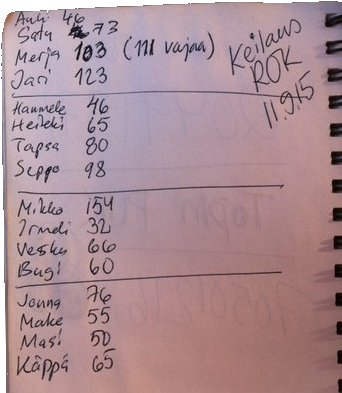 Auli 46
Satu 73
Merja 103 (111 vajaa)
Jari 123
Keilaus
ROK
11.9.15
Hannele 46
Heikki 65
Tapsa 80
Seppo 98
Mikko 154
Irmeli 32
Vesku 66
Bugi 60
Jonna 76
Make 55
Masi 50
Käppä 65